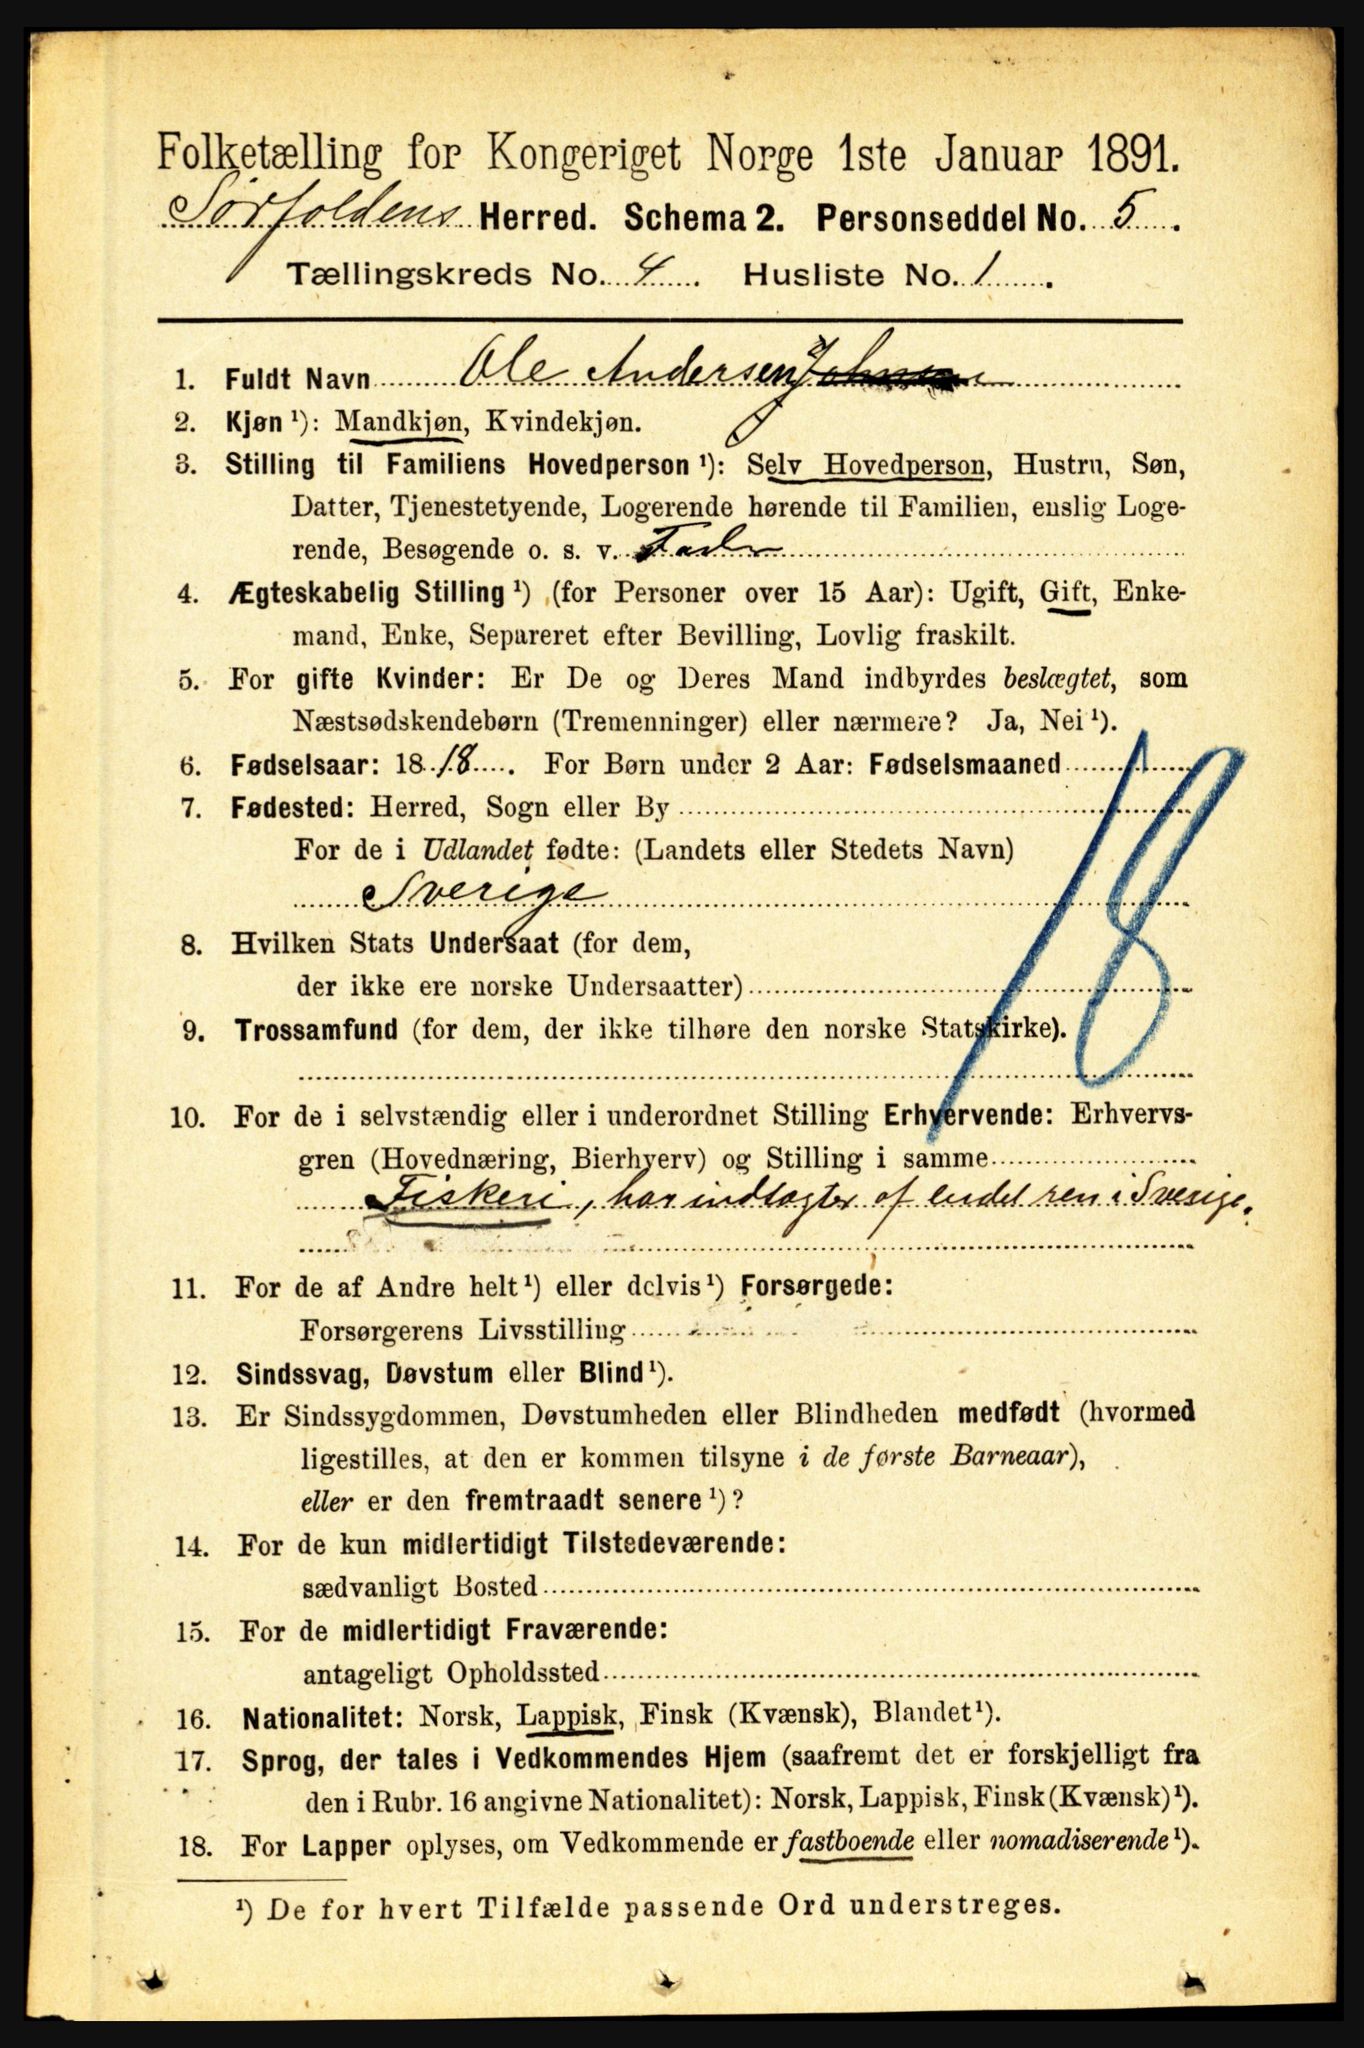 Folketælling for Kongeriget Norge 1ste Januar 1891.
Sørfoldens Herred. Schema 2. Personseddel No. 5.
Tællingskreds No. 4. Husliste No. 1.
1. Fuldt Navn Ole Andersen
2. Kjøn ¹): Mandkjøn, Kvindekjøn.
3. Stilling til Familiens Hovedperson ¹): Selv Hovedperson, Hustru, Søn,
Datter, Tjenestetyende, Logerende hørende til Familien, enslig Loge-
rende, Besøgende o. s. v. Fader
4. Ægteskabelig Stilling ¹) (for Personer over 15 Aar): Ugift, Gift, Enke-
mand, Enke, Separeret efter Bevilling, Lovlig fraskilt.
5. For gifte Kvinder: Er De og Deres Mand indbyrdes beslægtet, som
Næstsødskendebørn (Tremenninger) eller nærmere? Ja, Nei ¹).
6. Fødselsaar: 1818. For Børn under 2 Aar: Fødselsmaaned
7. Fødested: Herred, Sogn eller By
For de i Udlandet fødte: (Landets eller Stedets Navn)
Sverige
18
8. Hvilken Stats Undersaat (for dem,
der ikke ere norske Undersaatter)
9. Trossamfund (for dem, der ikke tilhøre den norske Statskirke).
10. For de i selvstændig eller i underordnet Stilling Erhvervende: Erhvervs-
gren (Hovednæring, Bierhverv) og Stilling i samme
Fiskeri, har indtægter af endel ren i Sverige.
11. For de af Andre helt ¹) eller delvis ¹) Forsørgede:
Forsørgerens Livsstilling
12. Sindssvag, Døvstum eller Blind ¹).
13. Er Sindssygdommen, Døvstumheden eller Blindheden medfødt (hvormed
ligestilles, at den er kommen tilsyne i de første Barneaar),
eller er den fremtraadt senere ¹)?
14. For de kun midlertidigt Tilstedeværende:
sædvanligt Bosted
15. For de midlertidigt Fraværende:
antageligt Opholdssted
16. Nationalitet: Norsk, Lappisk, Finsk (Kvænsk), Blandet ¹).
17. Sprog, der tales i Vedkommendes Hjem (saafremt det er forskjelligt fra
den i Rubr. 16 angivne Nationalitet): Norsk, Lappisk, Finsk (Kvænsk) ¹).
18. For Lapper oplyses, om Vedkommende er fastboende eller nomadiserende ¹).
¹) De for hvert Tilfælde passende Ord understreges.